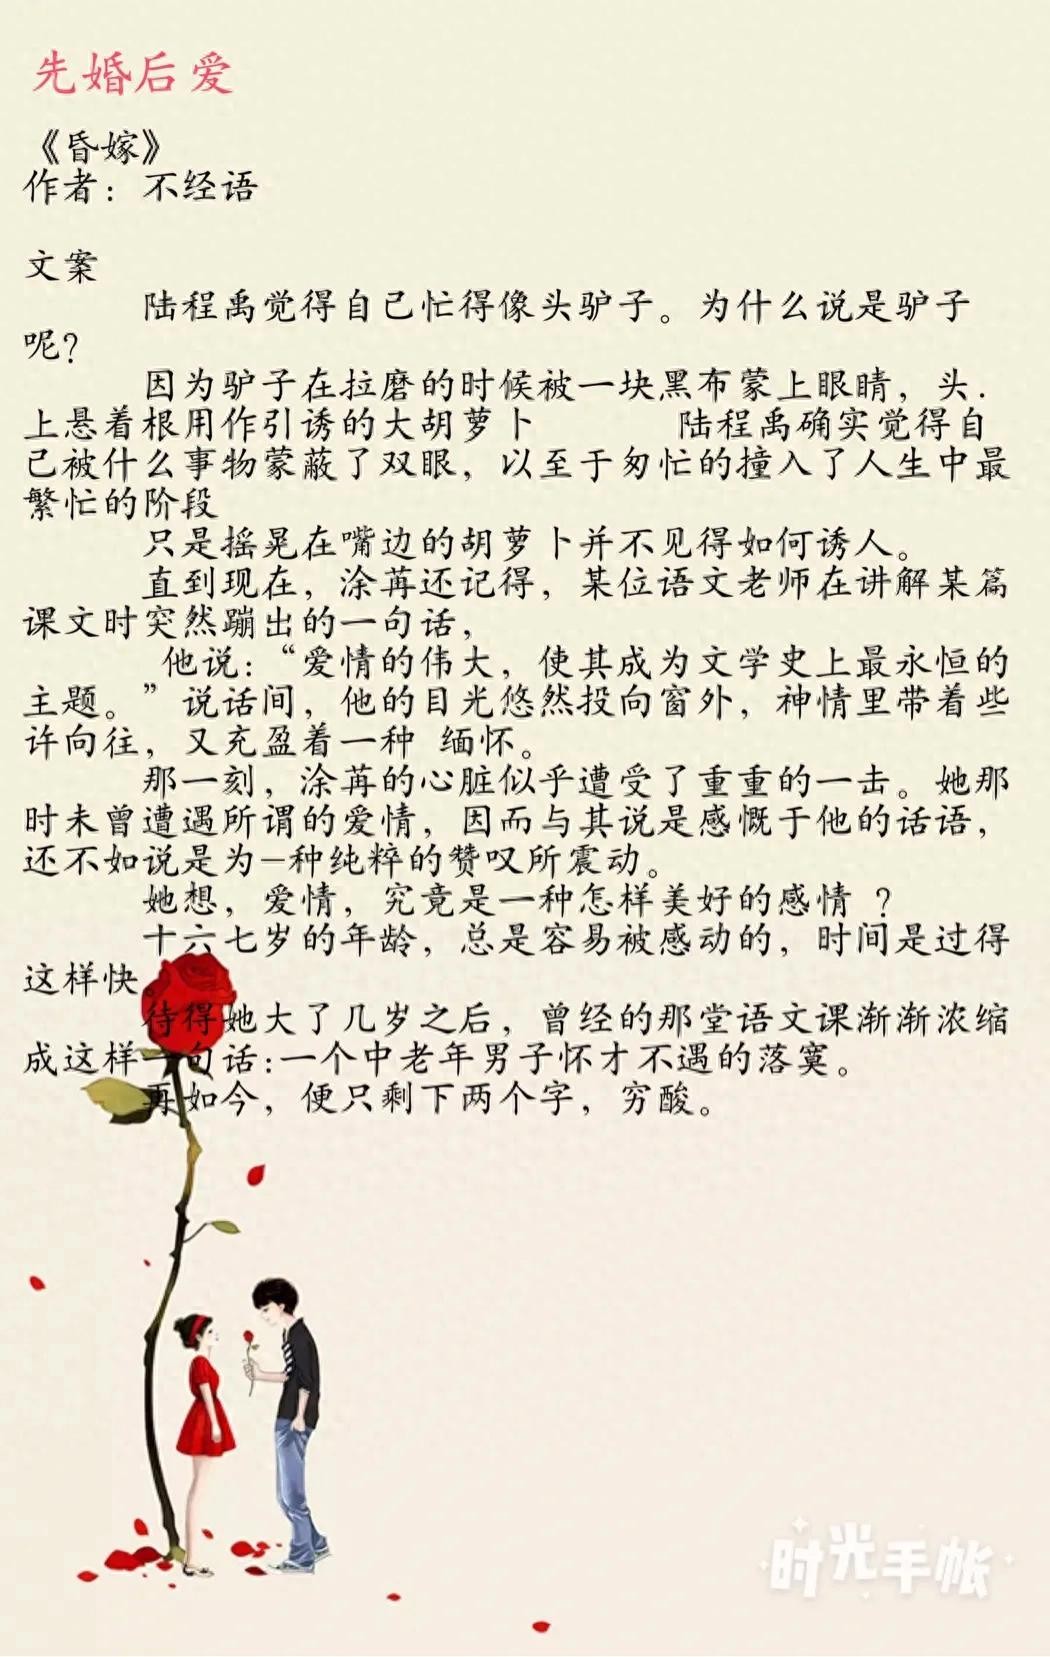 先婚后爱
《昏嫁》
作者：不经语
文案
陆程禹觉得自己忙得像头驴子。为什么说是驴子
呢？
因为驴子在拉磨的时候被一块黑布蒙上眼睛，头.
上悬着根用作引诱的大胡萝卜 陆程禹确实觉得自
己被什么事物蒙蔽了双眼，以至于匆忙的撞入了人生中最
繁忙的阶段
只是摇晃在嘴边的胡萝卜并不见得如何诱人。
直到现在，涂苒还记得，某位语文老师在讲解某篇
课文时突然蹦出的一句话，
他说：“爱情的伟大，使其成为文学史上最永恒的
主题。” 说话间，他的目光悠然投向窗外，神情里带着些
许向往，又充盈着一种 缅怀。
那一刻，涂苒的心脏似乎遭受了重重的一击。她那
时未曾遭遇所谓的爱情，因而与其说是感慨于他的话语，
还不如说是为—种纯粹的赞叹所震动。
她想，爱情，究竟是一种怎样美好的感情 ？
十六七岁的年龄，总是容易被感动的，时间是过得
这样快。
待得她大了几岁之后，曾经的那堂语文课渐渐浓缩
成这样一句话:一个中老年男子怀才不遇的落寞。
再如今，便只剩下两个字，穷酸。
时光手帐